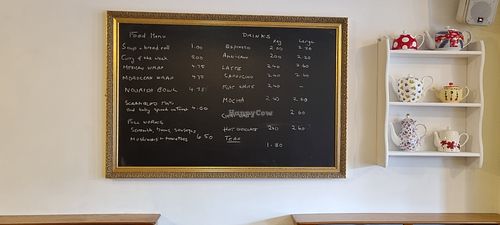 Food Menu
Soup + bread roll 1.00
Curry of the week
Mexican wrap 4.75
Moroccan wrap 4.75
Nourish Bowl 4.75
Scrambled Tofu
and baby spinach 4.00
Full works
Scramble, beans, sausages
Mushrooms + tomatoes 6.50
DRINKS
Reg Large
Espresso 2.00 2.20
Americano 2.00 2.20
Latte 2.40 2.60
Cappuccino 2.40 2.60
Flat white 2.40 —
Mocha 2.40 2.60
2.60
Hot chocolate 2.40 2.60
Teas
1.80
HappyCow